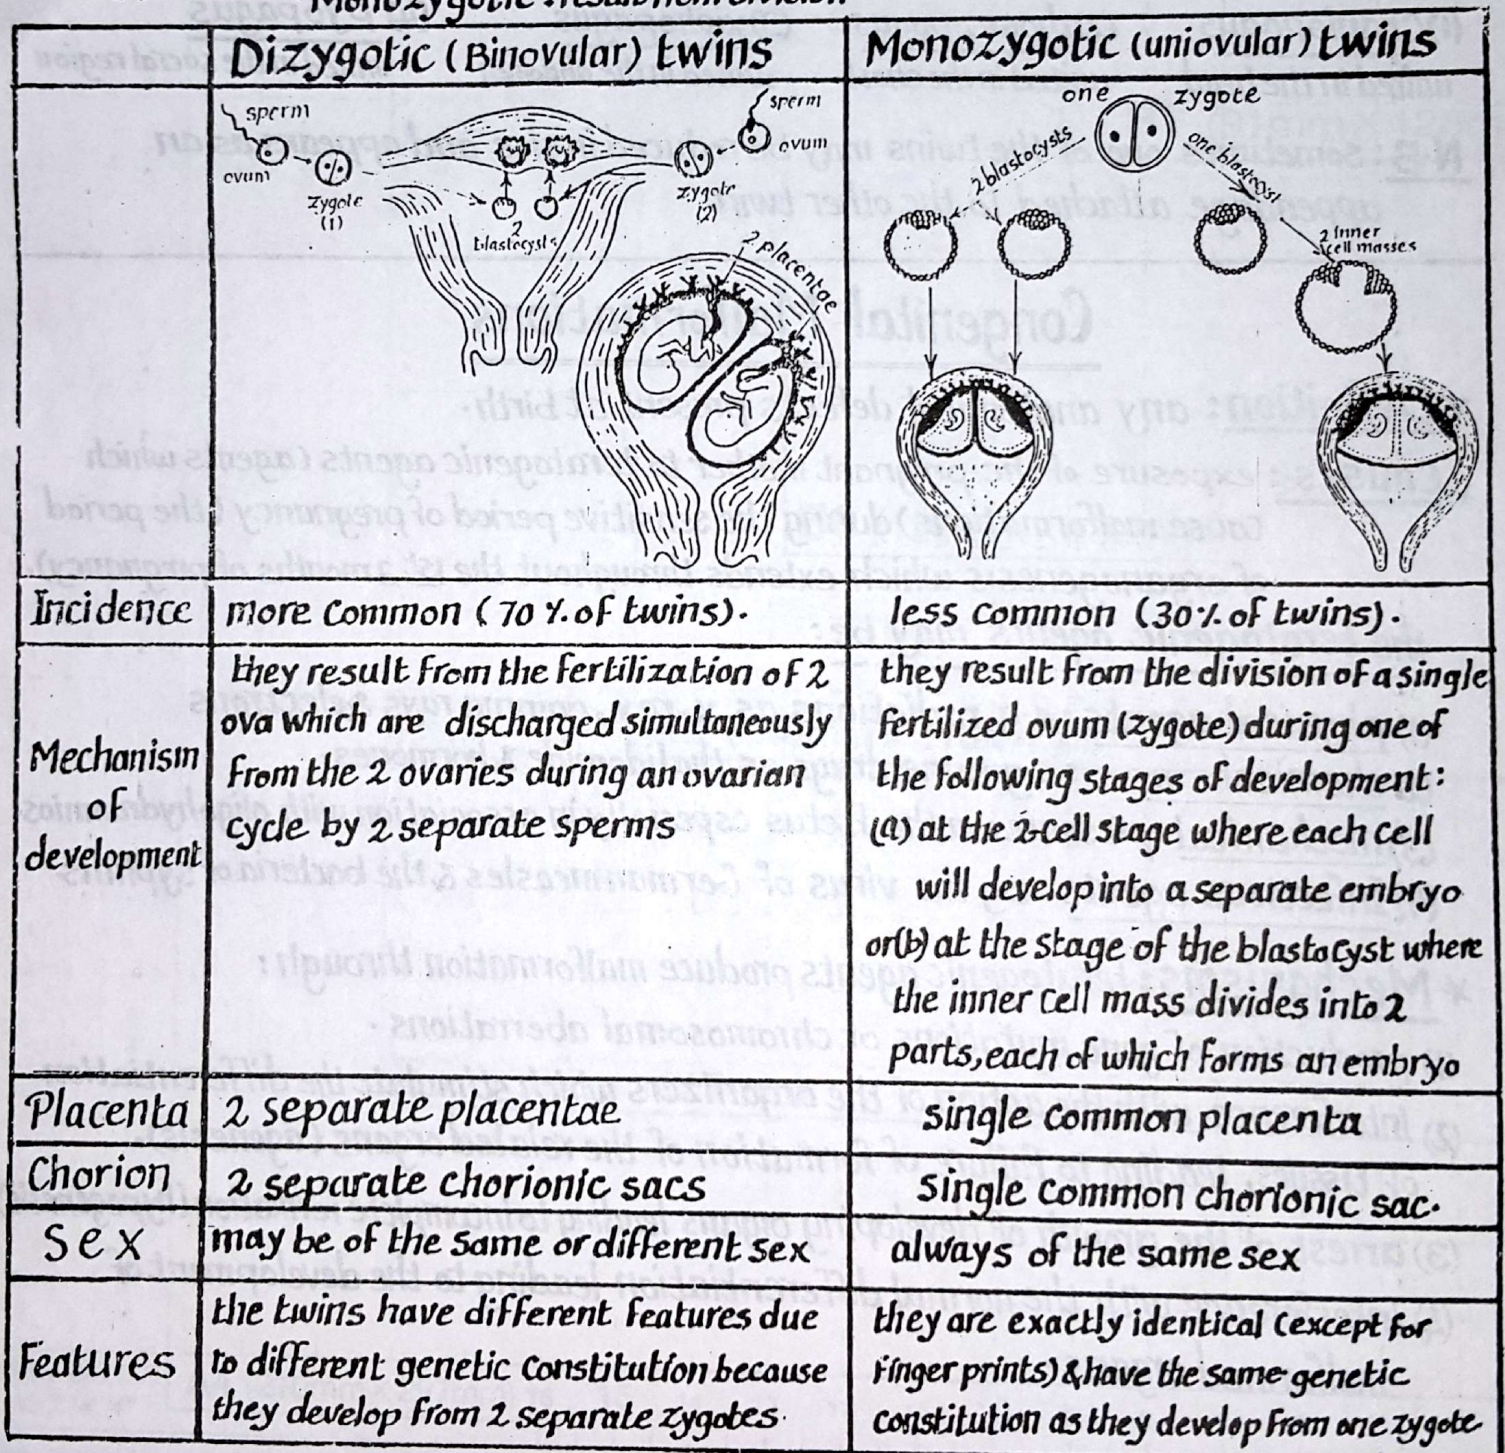 Monozygotic : result from division
Dizygotic (Binovular) twins
Monozygotic (uniovular) twins
sperm
ovum
zygote
(1)
2
blastocysts
sperm
ovum
zygote
(2)
2 placentae
one zygote
2 blastocysts
one blastocyst
2 inner
cell masses
Incidence
more common ( 70 % of twins).
less common (30% of twins).
Mechanism
of
development
they result from the fertilization of 2
ova which are discharged simultaneously
from the 2 ovaries during an ovarian
cycle by 2 separate sperms
they result from the division of a single
fertilized ovum (zygote) during one of
the following stages of development:
(a) at the 2-cell stage where each cell
will develop into a separate embryo
or(b) at the stage of the blastocyst where
the inner cell mass divides into 2
parts, each of which forms an embryo
Placenta
2 separate placentae
single common placenta
Chorion
2 separate chorionic sacs
single common chorionic sac.
Sex
may be of the same or different sex
always of the same sex
Features
the twins have different features due
to different genetic constitution because
they develop from 2 separate zygotes.
they are exactly identical (except for
finger prints) & have the same genetic
constitution as they develop from one zygote